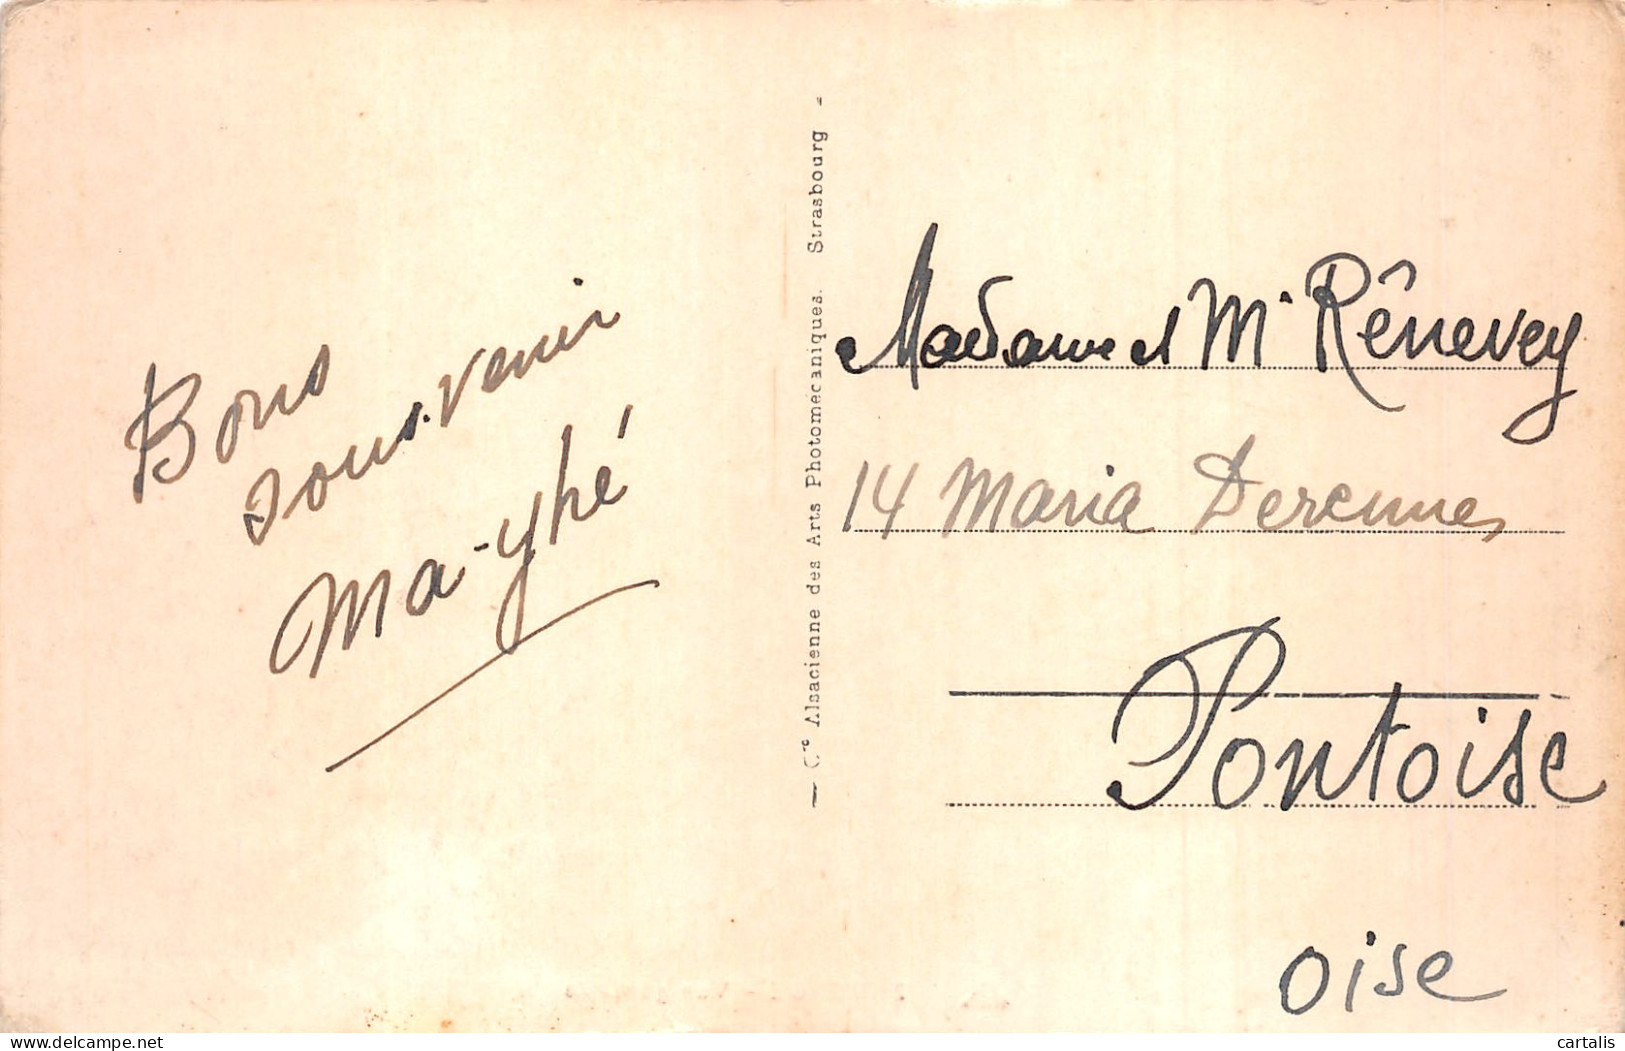 Bons
sous-venir
Ma-yhé
— Cie Alsacienne des Arts Photomécaniques. Strasbourg -
Madame et Mr Rênevey
14 Maria Derennes
Pontoise
Oise
www.delcampe.net
cartalis